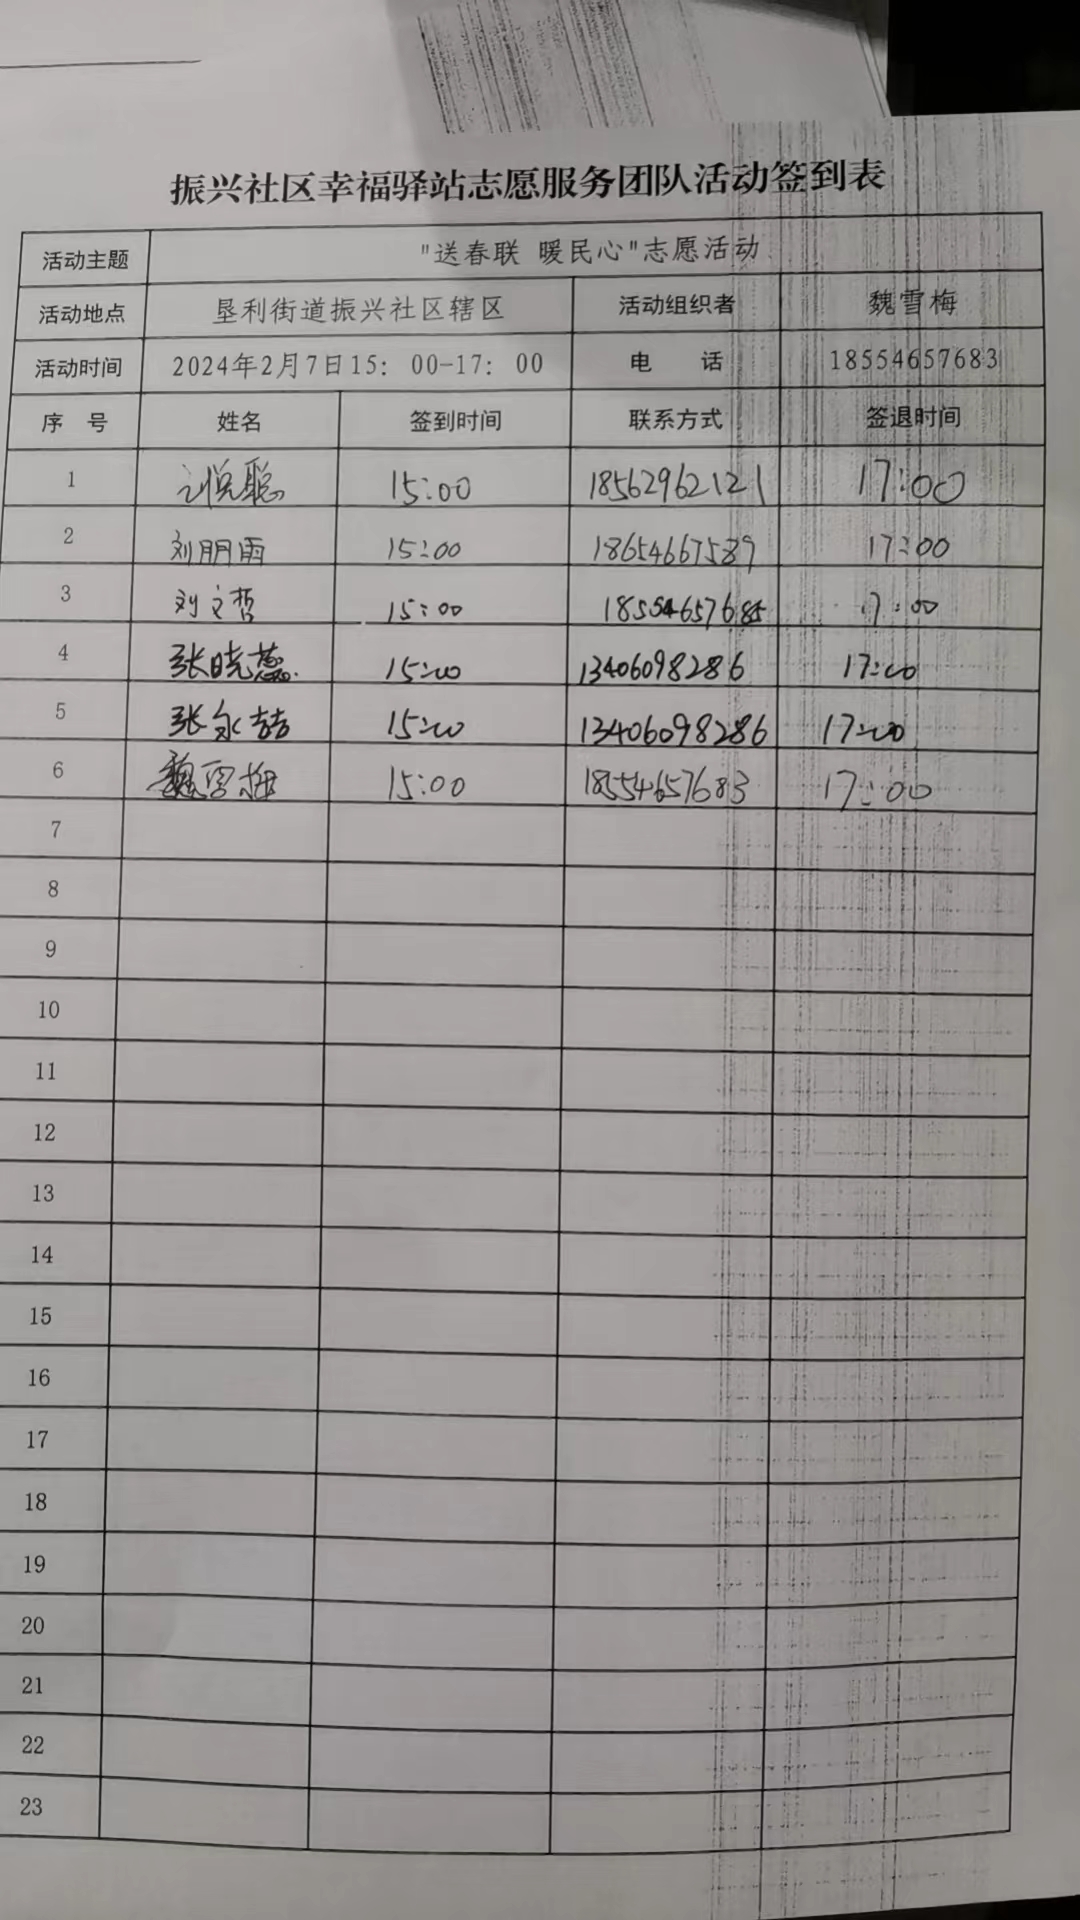 振兴社区幸福驿站志愿服务团队活动签到表
活动主题 "送春联 暖民心"志愿活动
活动地点 垦利街道振兴社区辖区 活动组织者 魏雪梅
活动时间 2024年2月7日15：00-17：00 电 话 18554657683
序 号 姓名 签到时间 联系方式 签退时间
1 悦聪 15:00 18562962121 17:00
2 刘朋雨 15:00 18654667589 17:00
3 刘文哲 15:00 18554657685 17:00
4 张晓蕊 15:00 13406098286 17:00
5 张永喆 15:00 13406098286 17:00
6 魏雪梅 15:00 18554657683 17:00
7
8
9
10
11
12
13
14
15
16
17
18
19
20
21
22
23